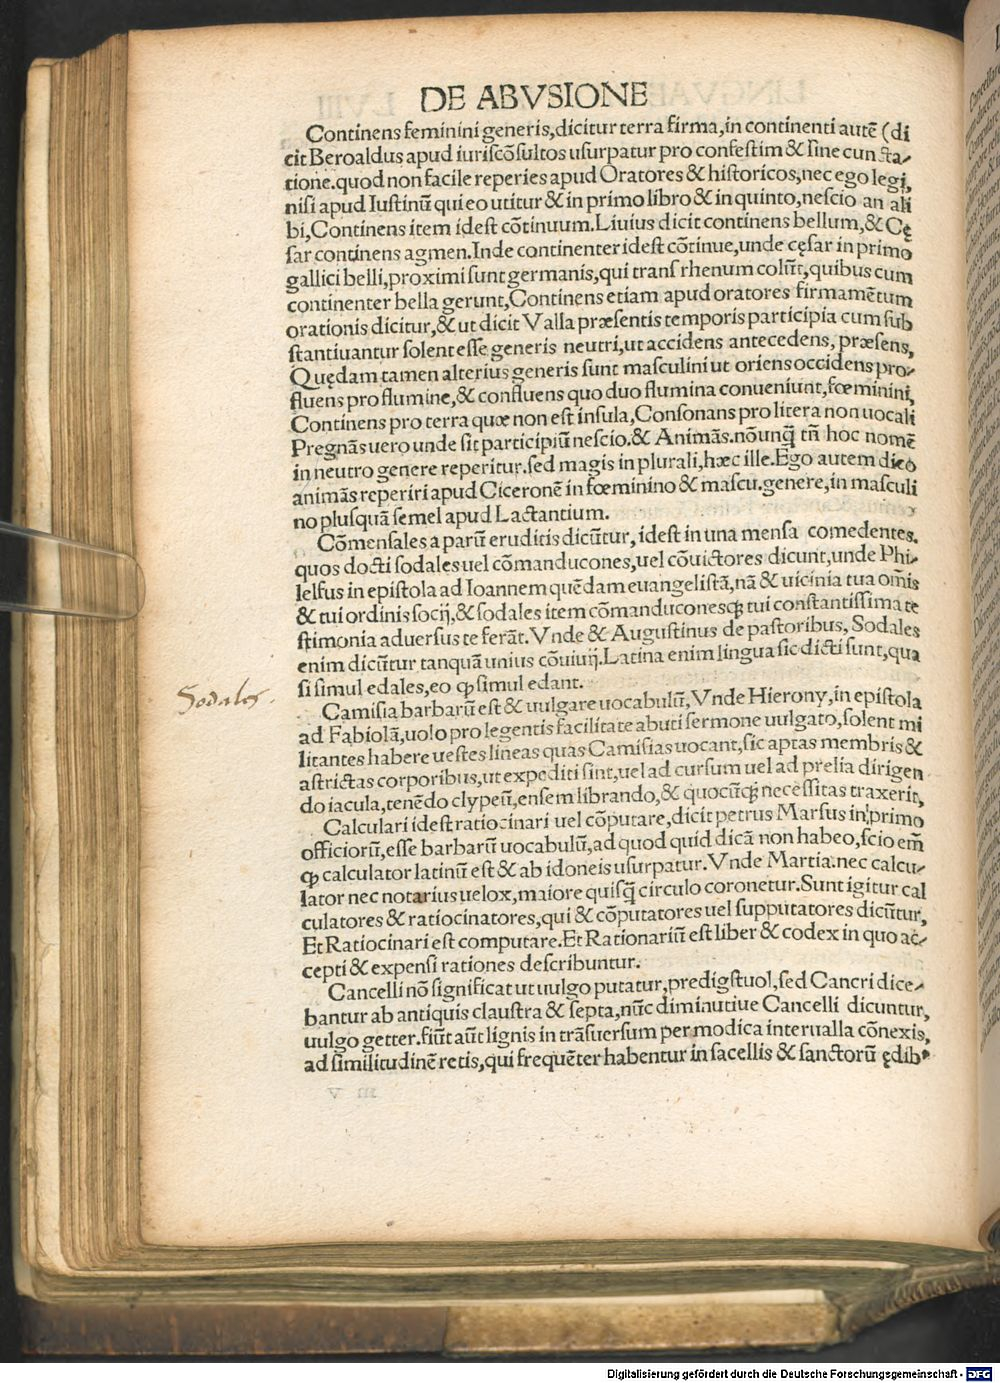 DE ABVSIONE
Continens feminini generis,dicitur terra firma,in continenti autē (di
cit Beroaldus apud iuriscōsultos usurpatur pro confestim & sine cuncta⸗
tione.quod non facile reperies apud Oratores & historicos,nec ego legi,
nisi apud Iustinū qui eo utitur & in primo libro & in quinto,nescio an ali
bi,Continens item idest cōtinuum.Liuius dicit continens bellum,& Cę
sar continens agmen.Inde continenter idest cōtinue,unde cęsar in primo
gallici belli,proximi sunt germanis,qui trans rhenum colūt,quibus cum
continenter bella gerunt,Continens etiam apud oratores firmamētum
orationis dicitur,& ut dicit Valla præsentis temporis participia cum sub
stantiuantur solent esse generis neutri,ut accidens antecedens, præsens,
Quędam tamen alterius generis sunt masculini ut oriens occidens pro⸗
fluens pro flumine,& confluens quo duo flumina conueniunt,fœminini,
Continens pro terra quæ non est insula,Consonans pro litera non uocali
Pregnās uero unde sit participiū nescio.& Animās.nōunq̄ tn̄ hoc nomē
in neutro genere reperitur.sed magis in plurali,hæc ille.Ego autem dico
animās reperiri apud Ciceronē in fœminino & mascu.genere,in masculi
no plusquā semel apud Lactantium.
Cōmensales a parū eruditis dicūtur, idest in una mensa comedentes.
quos docti sodales uel cōmanducones,uel cōuictores dicunt,unde Phi⸗
lelfus in epistola ad Ioannem quēdam euangelistā,nā & uicinia tua om̄is
& tui ordinis socij,& sodales item cōmanduconesq̨ tui constantissima te
stimonia aduersus te ferāt.Vnde & Augustinus de pastoribus, Sodales
enim dicūtur tanquā unius cōuiuij.Latina enim lingua sic dicti sunt,qua
si simul edales,eo ꝙ simul edant.
Sodales.
Camisia barbarū est & uulgare uocabulū,Vnde Hierony,in epistola
ad Fabiolā,uolo pro legentis facilitate abuti sermone uulgato,solent mi
litantes habere uestes lineas quas Camisias uocant,sic aptas membris &
astrictas corporibus,ut expediti sint,uel ad cursum uel ad prelia dirigen
do iacula,tenēdo clypeū,ensem librando,& quocūq̨ necessitas traxerit,
Calculari idest ratiocinari uel cōputare,dicit petrus Marsus in primo
officiorū,esse barbarū uocabulū,ad quod quid dicā non habeo,scio em̄
ꝙ calculator latinū est & ab idoneis usurpatur.Vnde Martia:nec calcu⸗
lator nec notarius uelox,maiore quisq̄ circulo coronetur.Sunt igitur cal
culatores & ratiocinatores,qui & cōputatores uel supputatores dicūtur,
Et Ratiocinari est computare.Et Rationariū est liber & codex in quo ac⸗
cepti & expensi rationes describuntur.
Cancelli nō significat ut uulgo putatur,predigstuol,sed Cancri dice⸗
bantur ab antiquis claustra & septa,nūc diminutiue Cancelli dicuntur,
uulgo getter.fiūt aūt lignis in trāsuersum per modica interualla cōnexis,
ad similitudinē retis,qui frequēter habentur in sacellis & sanctorū ędibꝰ
Digitalisierung gefördert durch die Deutsche Forschungsgemeinschaft - DFG